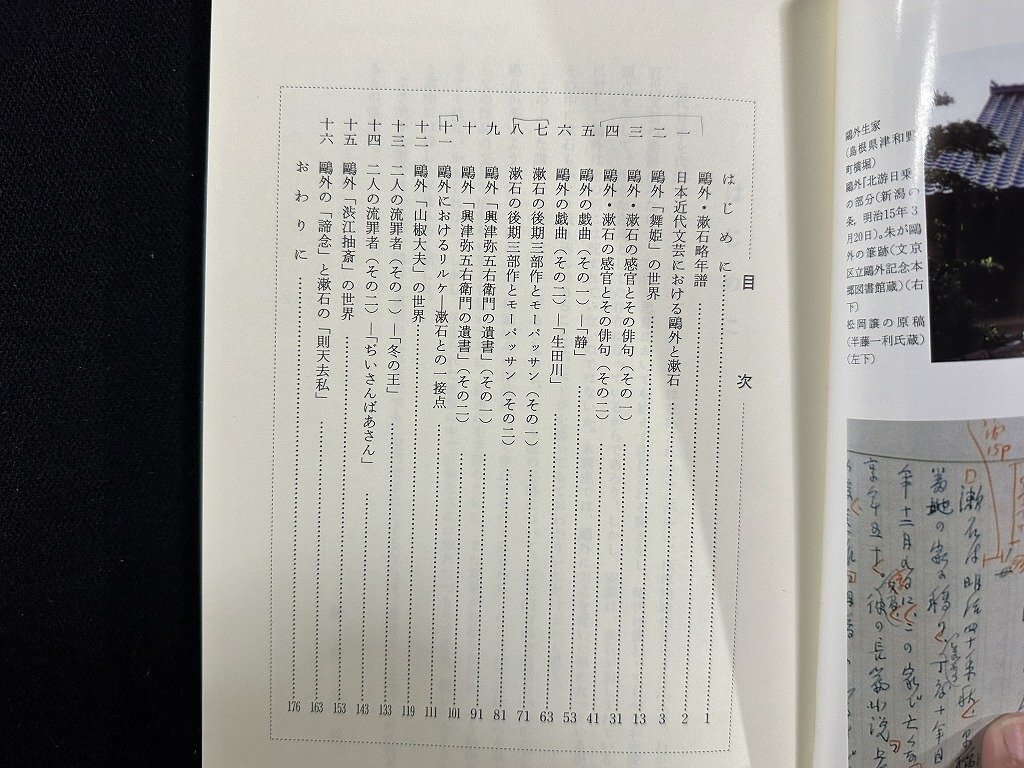 鷗外生家
(島根県津和野
町横堀)
鷗外『北游日乗』
の部分(新潟の
条、明治15年3
月20日)。朱が鷗
外の筆跡(文京
区立鷗外記念本
郷図書館蔵)(右
下)
松岡譲の原稿
(半藤一利氏蔵)
(左下)
漱石は明治四十年秋
年十二月九日に、この家で亡くな
の長篇小説
目次
はじめに 1
鷗外・漱石略年譜 2
一 日本近代文芸における鷗外と漱石 3
二 鷗外「舞姫」の世界 13
三 鷗外・漱石の感官とその俳句(その一) 31
四 鷗外・漱石の感官とその俳句(その二) 41
五 鷗外の戯曲(その一)―「静」 53
六 鷗外の戯曲(その二)―「生田川」 63
七 漱石の後期三部作とモーパッサン(その一) 71
八 漱石の後期三部作とモーパッサン(その二) 81
九 鷗外「興津弥五右衛門の遺書」(その一) 91
十 鷗外「興津弥五右衛門の遺書」(その二) 101
十一 鷗外におけるリルケ―漱石との一接点 111
十二 鷗外「山椒大夫」の世界 119
十三 二人の流罪者(その一)―「冬の王」 133
十四 二人の流罪者(その二)―「ぢいさんばあさん」 143
十五 鷗外「渋江抽斎」の世界 153
十六 鷗外の「諦念」と漱石の「則天去私」 163
おわりに 176